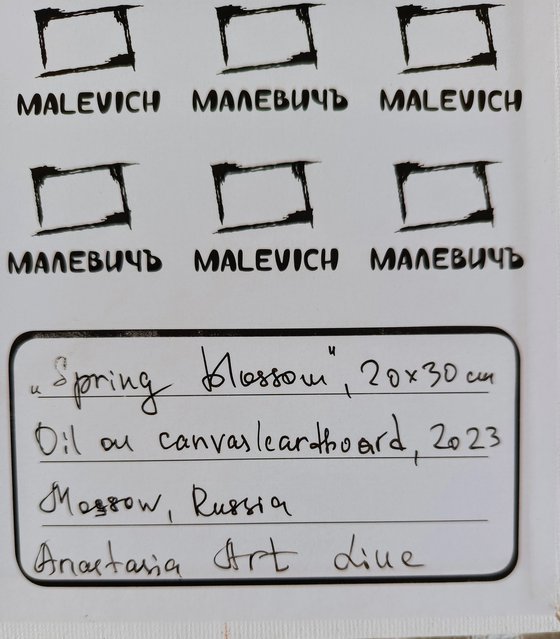 MALEVICH МАЛЕВИЧЪ MALEVICH
МАЛЕВИЧЪ MALEVICH МАЛЕВИЧЪ
„Spring blossom", 20×30 cm
Oil on canvas/cardboard, 2023
Moscow, Russia
Anastasia Art Line